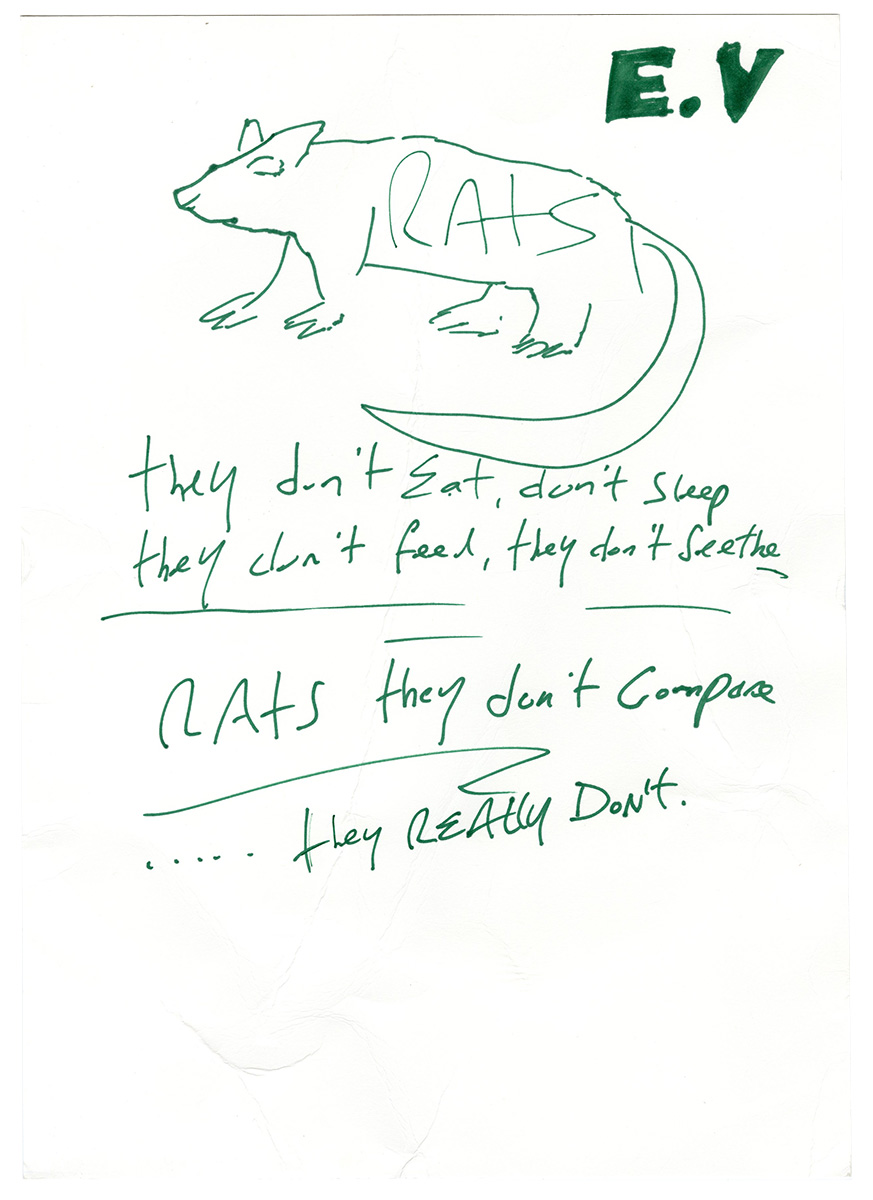 E.V
RAtS
they don't Eat, don't sleep
they don't feed, they don't seethe
RAtS they don't Compare
..... they REAlly DoN't.